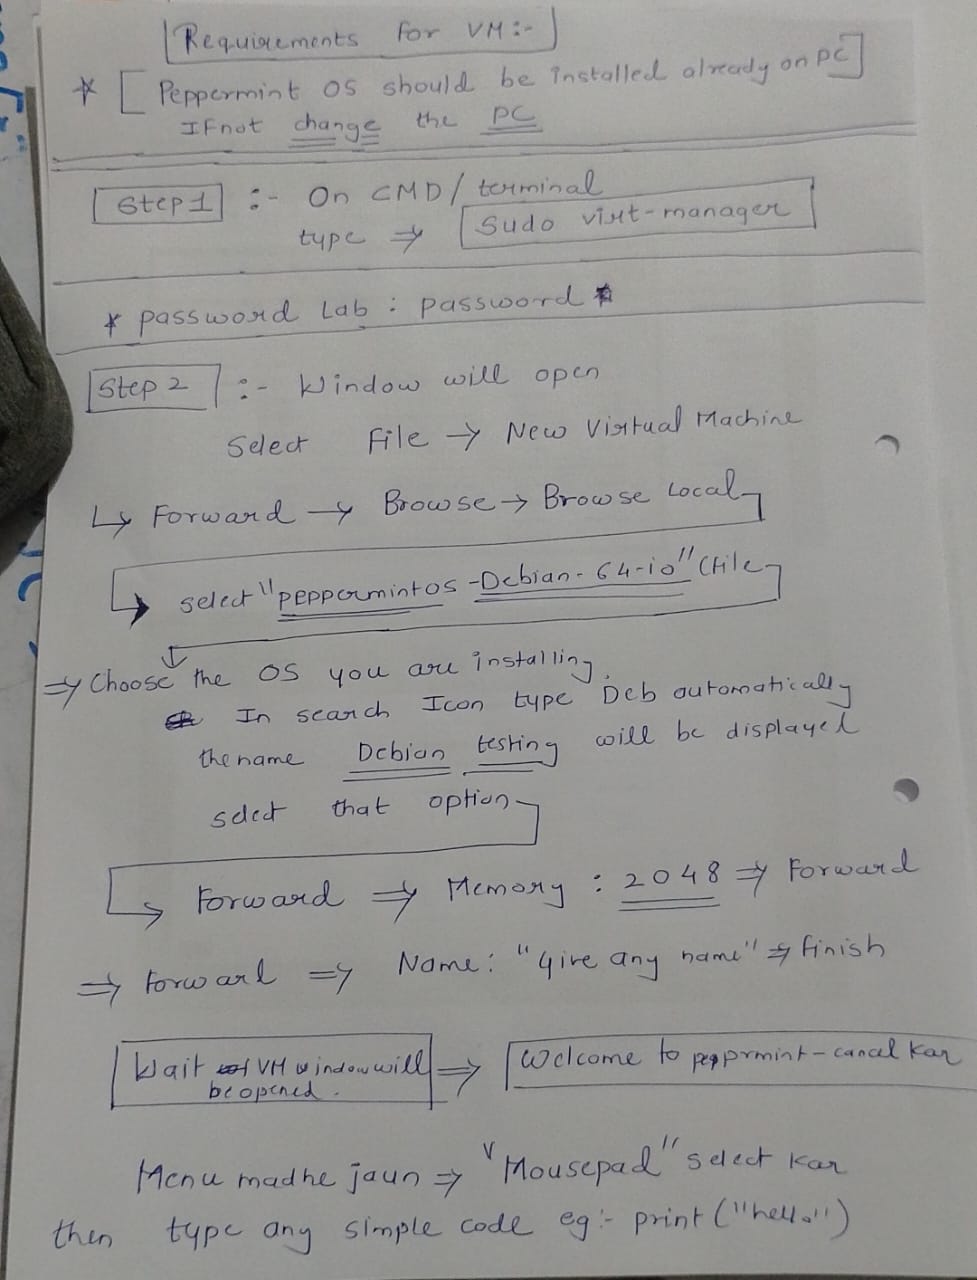 Requirements for VM :-
* [ Peppermint OS should be installed already on PC ]
IF not change the PC
Step 1 :- On CMD / terminal
type ⇒ Sudo virt-manager
* password Lab : password *
Step 2 :- Window will open
Select File → New Virtual Machine
↳ Forward → Browse → Browse Local
select "peppermintos -Debian- 64-io" (file
⇒ Choose the OS you are installing.
In search Icon type Deb automatically
the name Debian testing will be displayed
select that option
Forward ⇒ Memory : 2048 ⇒ Forward
⇒ Forward ⇒ Name: "give any name" ⇒ finish
Wait VM window will be opened. ⇒ Welcome to pepprmint - cancel kar
Menu madhe jaun ⇒ "Mousepad" select kar
then type any simple code eg :- print ("hello")